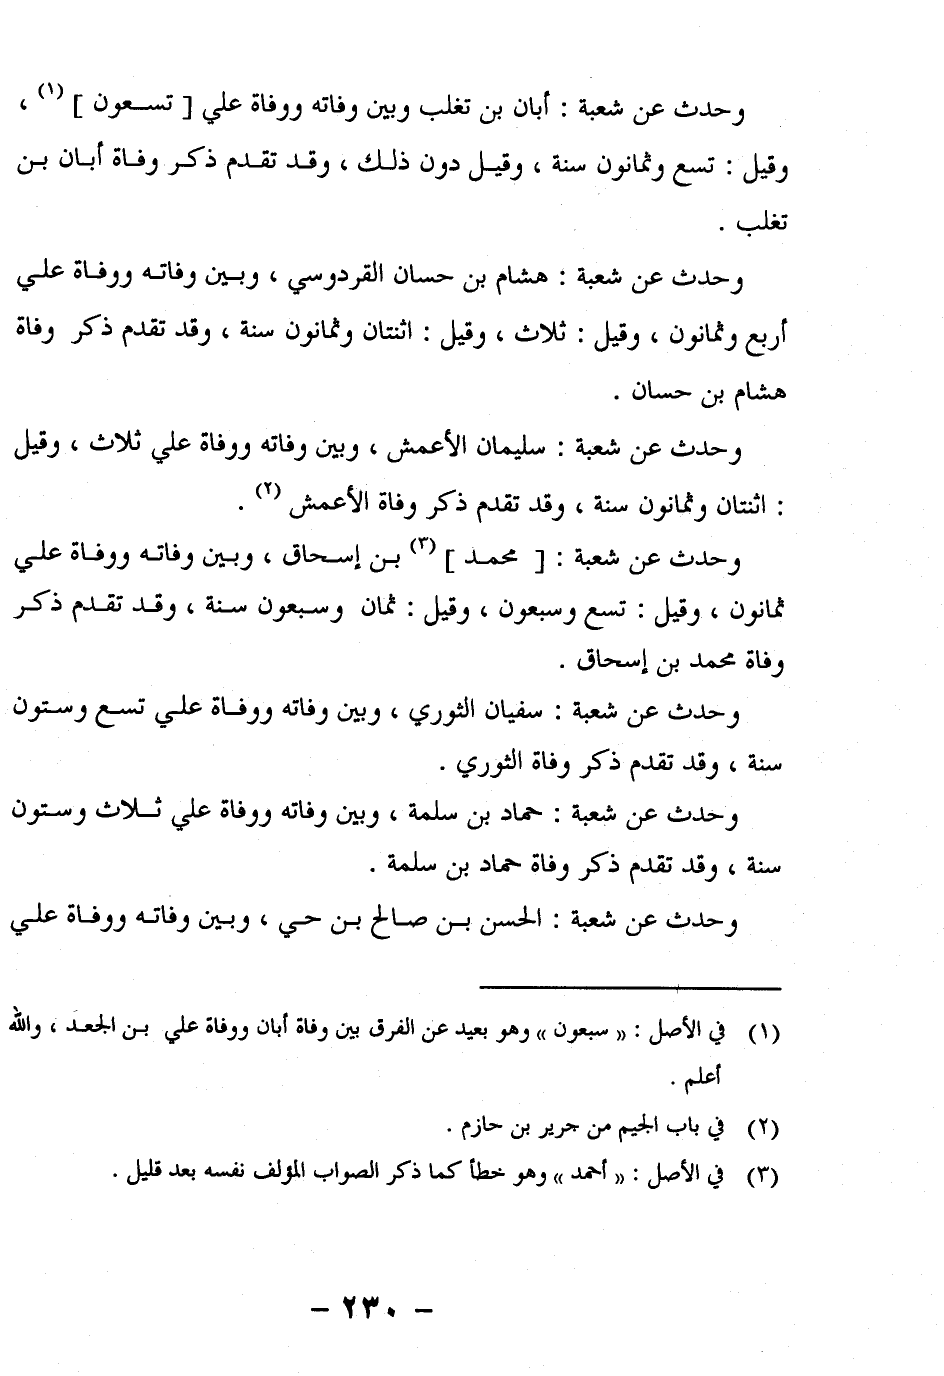 وحدث عن شعبة : أبان بن تغلب وبين وفاته ووفاة علي [ تسعون ] (١) ،
وقيل : تسع وثمانون سنة ، وقيل دون ذلك ، وقد تقدم ذكر وفاة أبان بن
تغلب .
وحدث عن شعبة : هشام بن حسان القردوسي ، وبين وفاته ووفاة علي
أربع وثمانون ، وقيل : ثلاث ، وقيل : اثنتان وثمانون سنة ، وقد تقدم ذكر وفاة
هشام بن حسان .
وحدث عن شعبة : سليمان الأعمش ، وبين وفاته ووفاة علي ثلاث ، وقيل
: اثنتان وثمانون سنة ، وقد تقدم ذكر وفاة الأعمش (٢) .
وحدث عن شعبة : [ محمد ] (٣) بن إسحاق ، وبين وفاته ووفاة علي
ثمانون ، وقيل : تسع وسبعون ، وقيل : ثمان وسبعون سنة ، وقد تقدم ذكر
وفاة محمد بن إسحاق .
وحدث عن شعبة : سفيان الثوري ، وبين وفاته ووفاة علي تسع وستون
سنة ، وقد تقدم ذكر وفاة الثوري .
وحدث عن شعبة : حماد بن سلمة ، وبين وفاته ووفاة علي ثلاث وستون
سنة ، وقد تقدم ذكر وفاة حماد بن سلمة .
وحدث عن شعبة : الحسن بن صالح بن حي ، وبين وفاته ووفاة علي
(١) في الأصل : « سبعون » وهو بعيد عن الفرق بين وفاة أبان ووفاة علي بن الجعد ، والله
أعلم .
(٢) في باب الجيم من جرير بن حازم .
(٣) في الأصل : « أحمد » وهو خطأ كما ذكر الصواب المؤلف نفسه بعد قليل .
– ٢٣٠ –